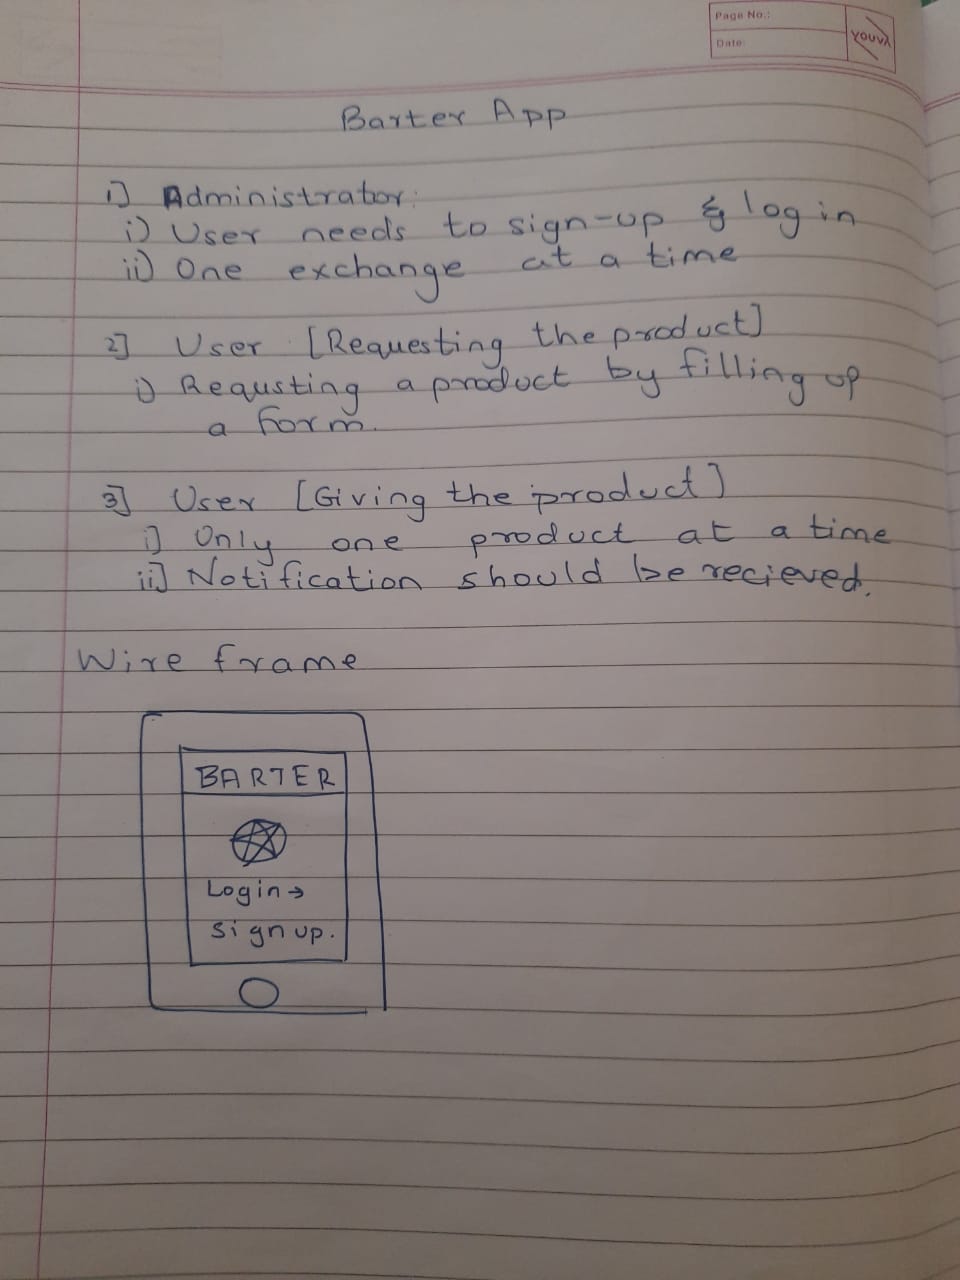 Page No.:
Date:
YOUVA
Barter App
1] Administrator:
i) User needs to sign-up & log in
ii) One exchange at a time
2] User [Requesting the product]
i) Requsting a product by filling up
a form.
3] User [Giving the product]
i] Only one product at a time
ii] Notification should be recieved.
Wire frame
BARTER
Login→
Sign up.